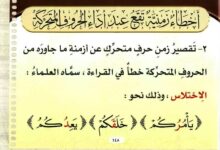 أخطاء زمنية تقع عند أداء الحروف المتحركة
٢- تقصيرُ زمنِ حرفٍ متحرِّكٍ عن أزمنةِ ما جاوره من
الحروف المتحرِّكة خطأٌ في القراءة ، سمَّاه العلماءُ :
الِاختلاس ، وذلك نحو :
﴿ يَأْمُرُكُمْ ﴾ ﴿ خَلَقَكُمْ ﴾ ﴿ يَعِدُكُمْ ﴾
١٤٨